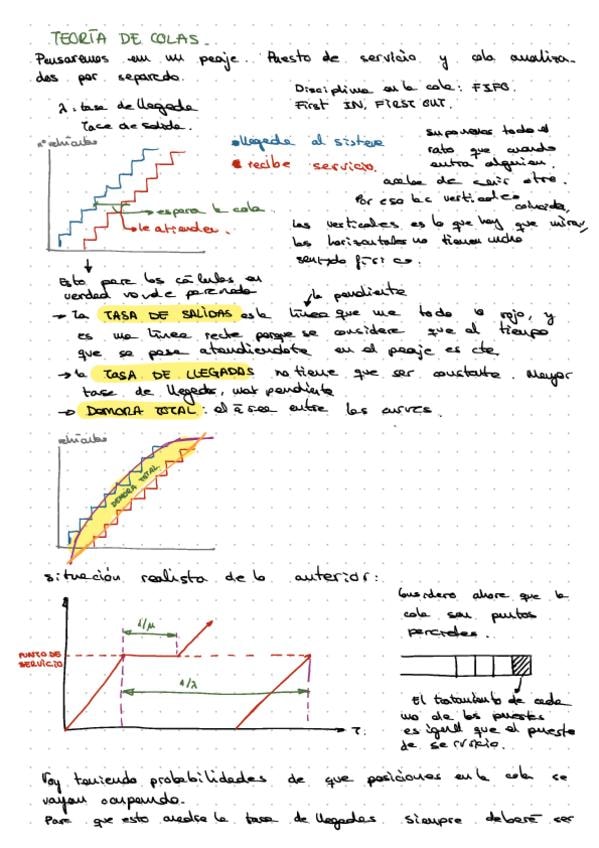 TEORÍA DE COLAS
Pensaremos en un peaje. Puesto de servicio y cola analiza-
dos por separado.
Disciplina en la cola: FIFO.
First IN, FIRST OUT.
λ: tasa de llegada
Tasa de salida.
nº vehículos
llegada al sistema
recibe servicio.
espera la cola.
le atienden.
Suponemos todo el
rato que cuando
entra alguien,
acaba de salir otro.
Por eso las verticales
las verticales es lo que hay que mirar,
las horizontales no tienen mucho
sentido físico.
Esto para los cálculos en
verdad va de
la pendiente
→ la TASA DE SALIDAS es la línea que une todo lo rojo, y
es una línea recta porque se considera que el tiempo
que se pasa atendiéndote en el peaje es cte.
→ la TASA DE LLEGADAS no tiene que ser constante. Mayor
tasa de llegada, mas pendiente
→ DEMORA TOTAL: el área entre las curvas.
vehículos
DEMORA TOTAL
situación realista de lo anterior:
Considero ahora que la
cola son puntos
1/μ
PUNTO DE
SERVICIO
1/λ
T.
El tratamiento de cada
uno de los puestos
es igual que el puesto
de servicio.
Voy teniendo probabilidades de que posiciones en la cola se
vayan ocupando.
Para que esto la tasa de llegadas siempre deberá ser